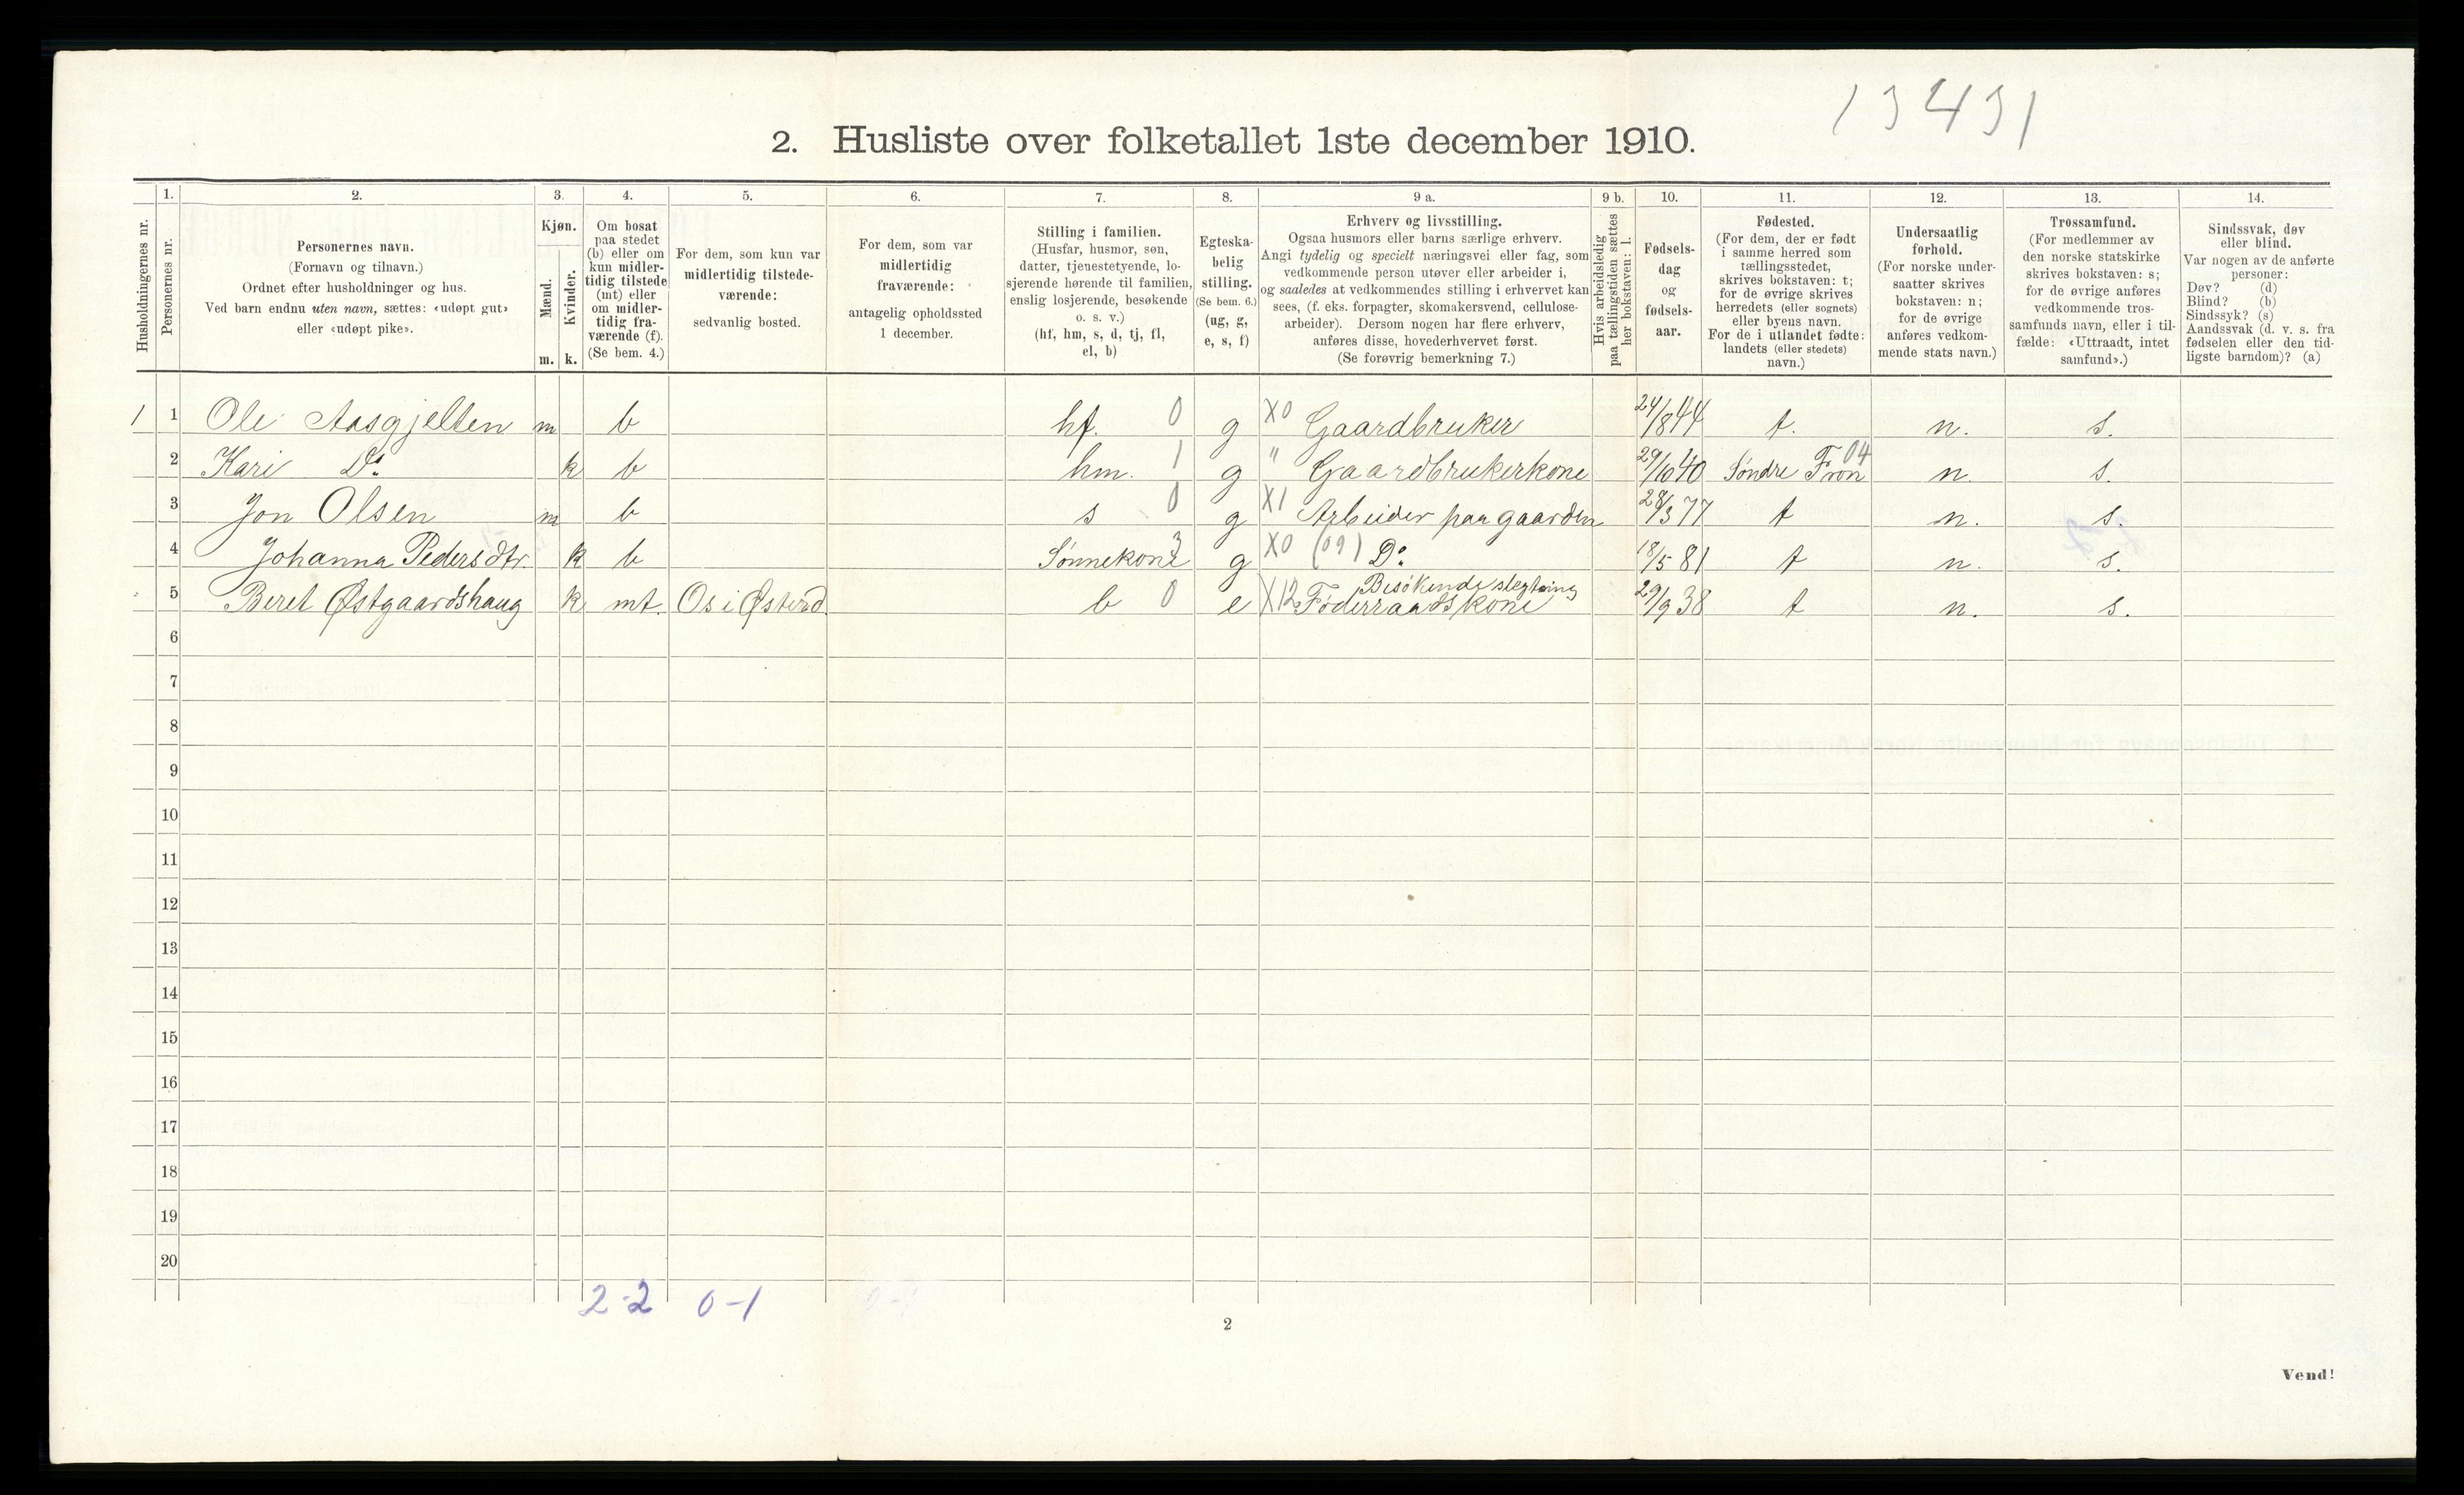 13431
2. Husliste over folketallet 1ste december 1910.
Husholdningernes nr.
1.
Personernes nr.
2.
Personernes navn.
(Fornavn og tilnavn.)
Ordnet efter husholdninger og hus.
Ved barn endnu uten navn, sættes: «udøpt gut»
eller «udøpt pike».
3.
Kjøn.
Mænd.
Kvinder.
m. k.
4.
Om bosat
paa stedet
(b) eller om
kun midler-
tidig tilstede
(mt) eller
om midler-
tidig fra-
værende (f).
(Se bem. 4.)
5.
For dem, som kun var
midlertidig tilstede-
værende:
sedvanlig bosted.
6.
For dem, som var
midlertidig
fraværende:
antagelig opholdssted
1 december.
7.
Stilling i familien.
(Husfar, husmor, søn,
datter, tjenestetyende, lo-
sjerende hørende til familien,
enslig losjerende, besøkende
o. s. v.)
(hf, hm, s, d, tj, fl,
el, b)
8.
Egteska-
belig
stilling.
(Se bem. 6.)
(ug, g,
e, s, f)
9 a.
Erhverv og livsstilling.
Ogsaa husmors eller barns særlige erhverv.
Angi tydelig og specielt næringsvei eller fag, som
vedkommende person utøver eller arbeider i,
og saaledes at vedkommendes stilling i erhvervet kan
sees, (f. eks. forpagter, skomakersvend, cellulose-
arbeider). Dersom nogen har flere erhverv,
anføres disse, hovederhvervet først.
(Se forøvrig bemerkning 7.)
9 b.
Hvis arbeidsledig
paa tællingstiden sættes
her bokstaven: l.
10.
Fødsels-
dag
og
fødsels-
aar.
11.
Fødested.
(For dem, der er født
i samme herred som
tællingsstedet,
skrives bokstaven: t;
for de øvrige skrives
herredets (eller sognets)
eller byens navn.
For de i utlandet fødte:
landets (eller stedets)
navn.)
12.
Undersaatlig
forhold.
(For norske under-
saatter skrives
bokstaven: n;
for de øvrige
anføres vedkom-
mende stats navn.)
13.
Trossamfund.
(For medlemmer av
den norske statskirke
skrives bokstaven: s;
for de øvrige anføres
vedkommende tros-
samfunds navn, eller i til-
fælde: «Uttraadt, intet
samfund».)
14.
Sindssvak, døv
eller blind.
Var nogen av de anførte
personer:
Døv? (d)
Blind? (b)
Sindssyk? (s)
Aandssvak (d. v. s. fra
fødselen eller den tid-
ligste barndom)? (a)
1 1 Ole Aasgjelten m b hf. 0 g X0 Gaardbruker 24/8 44 t. n. s.
2 Kari Do. k b hm. 1 g " Gaardbrukerkone 29/10 40 Søndre Fron 04 n. s.
3 Jon Olsen m b s 0 g X1 Arbeider paa gaarden 28/3 77 t n. s.
4 Johanna Pedersdtr. k b Sønnekone 3 g X0 (09) Do. 18/5 81 t n. s.
5 Beret Østgaardshaug k mt. Os i Østerd. b 0 e X12 Føderraadskone Besøkende slegtning 29/9 38 t n. s.
6
7
8
9
10
11
12
13
14
15
16
17
18
19
20
2-2 0-1
2
Vend!